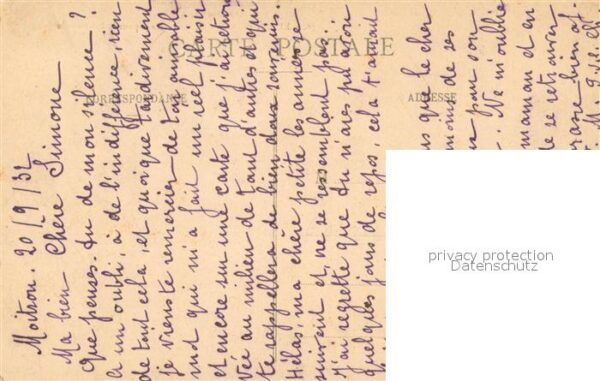 CARTE POSTALE
CORRESPONDANCE
ADRESSE
Moitron. 20/9/32
Ma bien Chère Simone
Que penses-tu de mon silence ?
à un oubli, à de l'indifférence, rien
de tout cela, et quoique tardivement
je viens te remercier de ton aimable
mot qui m'a fait un réel plaisir
et encore sur une carte que j'ai
au milieu de tant d'autres et qui
te rappellera de bien doux souvenirs.
Hélas, ma chère petite les années se
suivent et ne se ressemblent pas
J'ai regretté que tu n'aies pu avoir
quelques jours de repos, cela t'aurait
que le cher
de ses
pour son
Ne m'oublie
maman et en
de se retrouver
bientôt.
privacy protection
Datenschutz